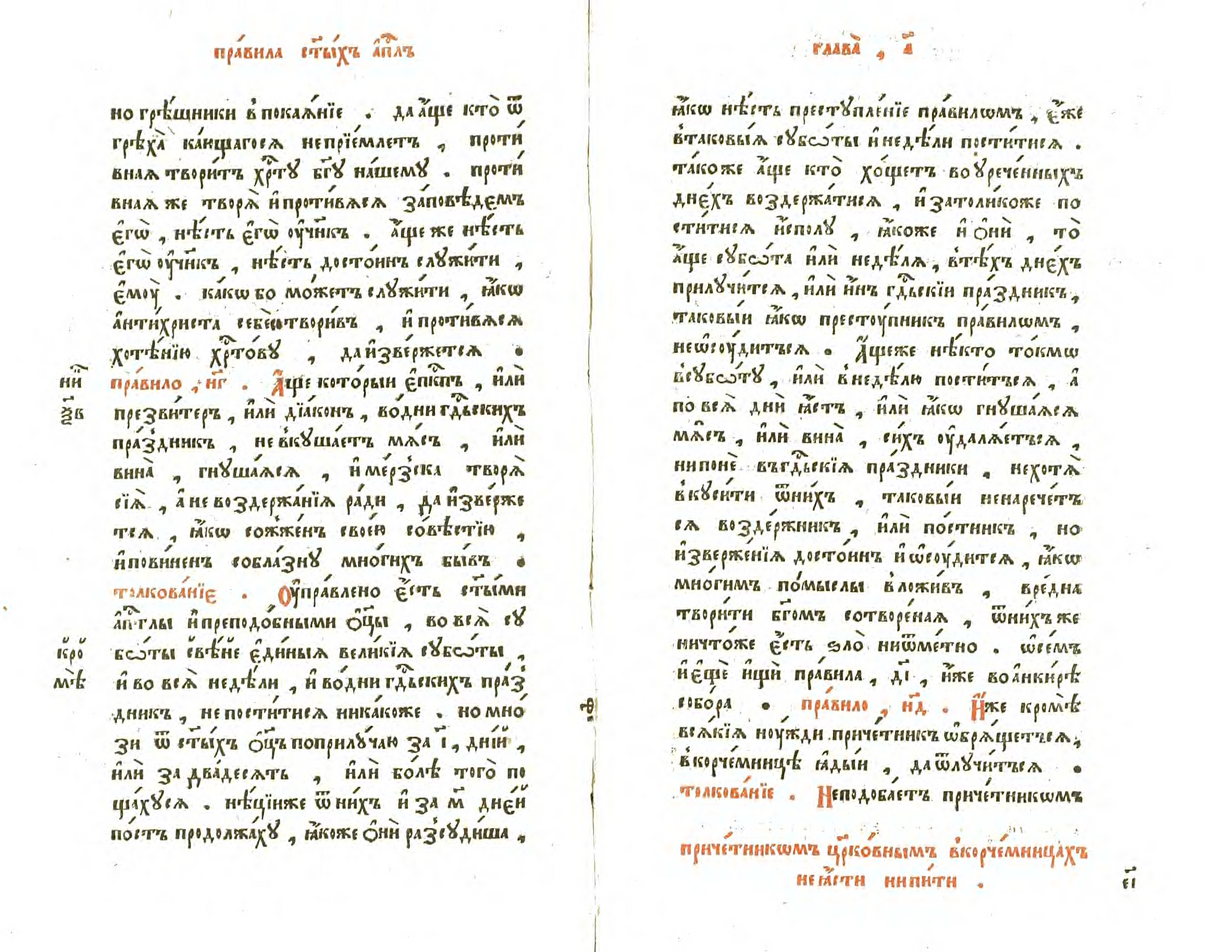 пра́вила ст҃ы́хъ а҆пⷭ҇лъ
но грѣ́шники в̾ покаѧ́нїе . да а҆́ще кто̀ ѿ
грѣха̀ ка́ющагосѧ непрїе́млетъ , проти́
внаѧ твори́тъ хрⷭ҇ту бг҃у на́шему . проти́
внаѧ же творѧ̀ и҆проти́вѧсѧ за́повѣдемъ
є҆гѡ̀ , нѣ́сть є҆гѡ̀ оу҆чн҃къ . а҆́ще же нѣ́сть
є҆гѡ̀ оу҆чн҃къ , нѣ́сть досто́инъ служи́ти ,
є҆моу̀ . ка́кѡ бо мо́жетъ служи́ти , ꙗ҆́кѡ
а҆нти́христа себѐсотвори́въ , и҆проти́вѧсѧ
хотѣ́нїю хрⷭ҇то́ву , даи҆зве́ржетсѧ .
пра́вило , н҃г . А҆́ще кото́рыи є҆пⷭ҇кпъ , и҆лѝ
презви́теръ , и҆лѝ дїа́конъ , во́дни гдⷭ҇ьскихъ
пра́здникъ , не вкуша́етъ мѧ́съ , и҆лѝ
вина̀ , гнуша́ѧсѧ , и҆ме́рзска творѧ̀
сїѧ̀ , а҆ не воздержа́нїѧ ра́ди , да и҆зве́рже
тсѧ , ꙗ҆́кѡ сожже́нъ свое́ю со́вѣстїю ,
и҆пови́ненъ собла́зну мно́гихъ бы́въ .
толкова́нїе . Оу҆пра́влено є҆́сть ст҃ы́ми
а҆пⷭ҇лы и҆преподо́бными ѻ҆ц҃ы̀ , во всѧ̀ су
бѡ́ты свѣ́не є҆ди́ныѧ вели́кїѧ субѡ́ты ,
и҆ во всѧ̀ недѣ́ли , и҆ во́дни гдⷭ҇ьскихъ пра́з
дникъ , не пости́тисѧ ника́коже . но мно́
зи ѿ ст҃ы́хъ ѻ҆ц҃ъ поприлу́чаю за і҃ , дні́й ,
и҆лѝ за два́десѧть , и҆лѝ бо́лѣ того̀ по
щахусѧ . нѣ́цїиже ѿни́хъ и҆ за м҃ дне́й
по́стъ продолжа́ху , ꙗ҆́коже ѻ҆нѝ разсуди́ша ,
кро́
мѣ
глава̀ , а҃
ꙗ҆́кѡ нѣ́сть преступле́нїе пра́вилѡмъ , є҆́же
втаковы́ѧ субѡ́ты и҆недѣ́ли пости́тисѧ .
та́коже а҆́ще кто̀ хо́щетъ во у҆рече́нныхъ
дне́хъ воздержа́тисѧ , и҆ затоли́коже по
сти́тисѧ и҆спо́лу , ꙗ҆́коже и҆ ѻ҆нѝ , то̀
а҆́ще субѡ́та и҆лѝ недѣ́лѧ , втѣ́хъ дне́хъ
прилучи́тсѧ , и҆лѝ и҆́нъ гдⷭ҇ьскїи пра́здникъ ,
таковы́и ꙗ҆́кѡ престоу́пникъ пра́вилѡмъ ,
неѡ҆соу́дитьсѧ . А҆́щеже нѣ́кто то́кмѡ
всубѡ́ту , и҆лѝ внедѣ́лю пости́тьсѧ , а҆
по всѧ̀ днѝ ꙗ҆́стъ , и҆лѝ ꙗ҆́кѡ гнуша́ѧсѧ
мѧ́съ , и҆лѝ вина̀ , си́хъ оу҆далѧ́етьсѧ ,
нипонѐ въгдⷭ҇ьскїѧ пра́здники , нехотѧ̀
вкуси́ти ѿни́хъ , таковы́и ненарече́тъ
сѧ возде́ржникъ , и҆лѝ по́стникъ , но
и҆зверже́нїѧ досто́инъ и҆ѡ҆соу́дитсѧ , ꙗ҆́кѡ
мно́гимъ по́мыслы вложи́въ , вре́дна
твори́ти бг҃омъ сотворе́наѧ , ѿни́хъже
ничто́же є҆́сть ѕло̀ ниѿме́тно . ѡ҆се́мъ
и҆ є҆щѐ и҆щѝ пра́вила , д҃і , и҆́же воа҆нки́рѣ
собо́ра . пра́вило , н҃д . И҆́же кромѣ̀
всѧ́кїѧ ноу́жди приче́тникъ ѡ҆брѧ́щетьсѧ ,
вкорче́мницѣ ꙗ҆ды́и , даѿлучи́тьсѧ .
толкова́нїе . Неподоба́етъ приче́тникѡмъ
приче́тникѡмъ цр҃ко́внымъ вкорче́мницахъ
не ꙗ҆́сти нипи́ти .
є҃і